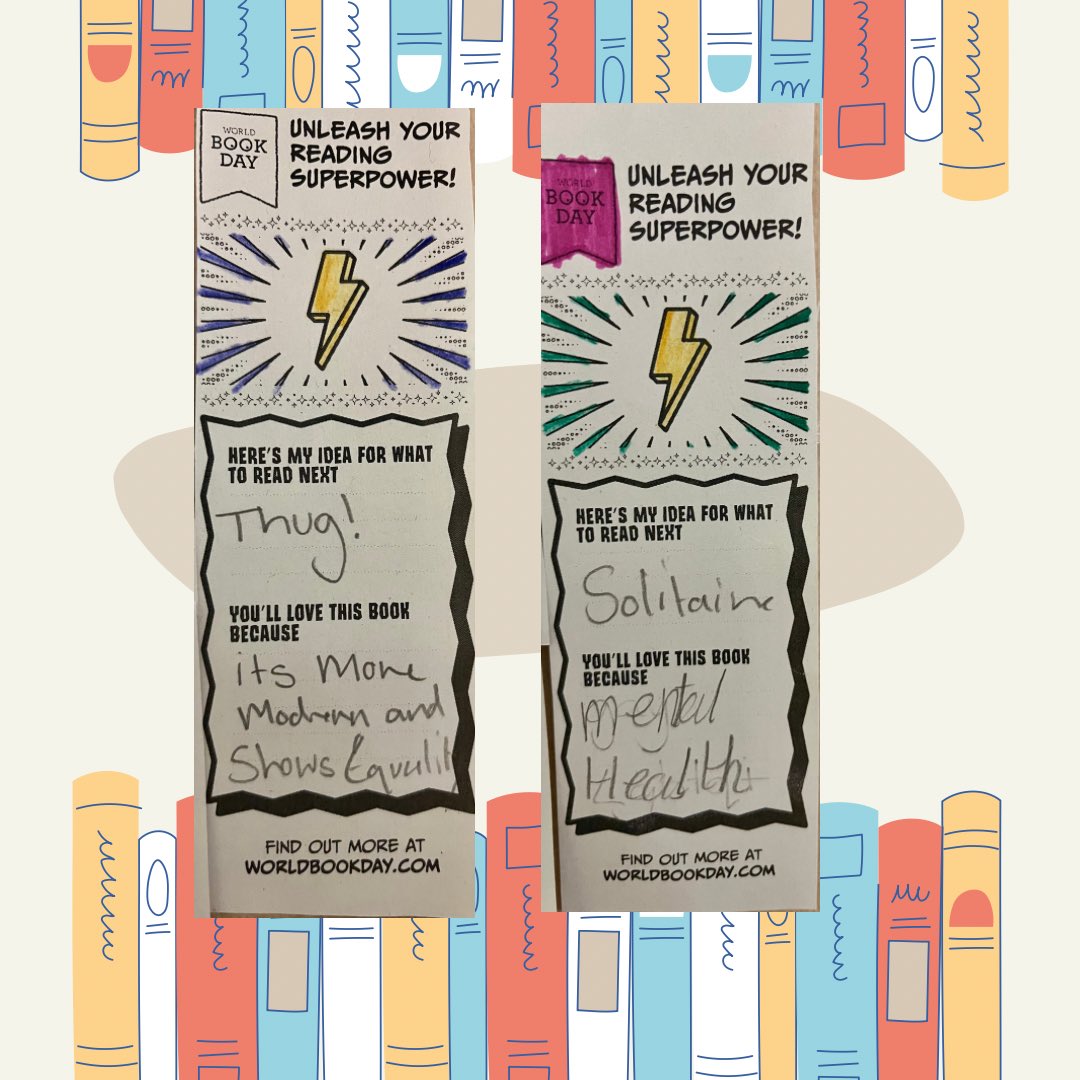 WORLD
BOOK
DAY
UNLEASH YOUR
READING
SUPERPOWER!
HERE'S MY IDEA FOR WHAT
TO READ NEXT
Thug!
YOU'LL LOVE THIS BOOK
BECAUSE
its More
Modern and
Shows Equalit
FIND OUT MORE AT
WORLDBOOKDAY.COM
WORLD
BOOK
DAY
UNLEASH YOUR
READING
SUPERPOWER!
HERE'S MY IDEA FOR WHAT
TO READ NEXT
Solitaire
YOU'LL LOVE THIS BOOK
BECAUSE
Mental
Health
FIND OUT MORE AT
WORLDBOOKDAY.COM